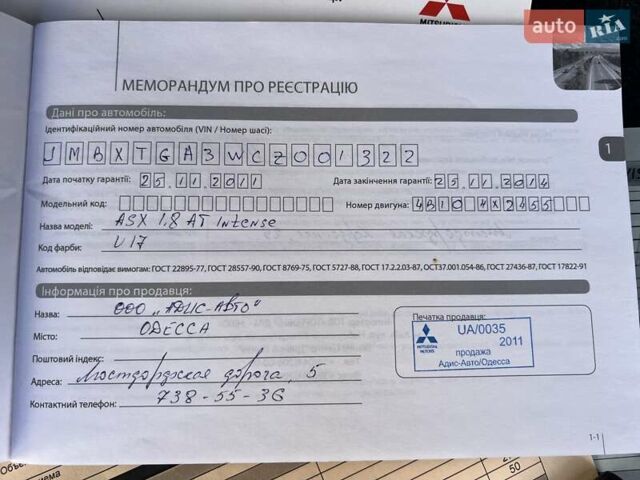 MITSUBISHI
auto RIA.com
МЕМОРАНДУМ ПРО РЕЄСТРАЦІЮ
Дані про автомобіль:
Ідентифікаційний номер автомобіля (VIN / Номер шасі):
JMBXTGA3WCZ001322
1
Дата початку гарантії: 25.11.2011 Дата закінчення гарантії: 25.11.2014
Модельний код: Номер двигуна: 4B10 4X2455
Назва моделі: ASX 1.8 AT Intense
Код фарби: U17
Автомобіль відповідає вимогам: ГОСТ 22895-77, ГОСТ 28557-90, ГОСТ 8769-75, ГОСТ 5727-88, ГОСТ 17.2.2.03-87, ОСТ37.001.054-86, ГОСТ 27436-87, ГОСТ 17822-91
Інформація про продавця:
Назва: ООО "АДИС-АВТО"
Печатка продавця:
Місто: ОДЕССА
MITSUBISHI MOTORS
UA/0035
2011
продажа
Адис-Авто/Одесса
Поштовий індекс:
Адреса: дорога, 5
Контактний телефон: 738-55-36
1-1
50